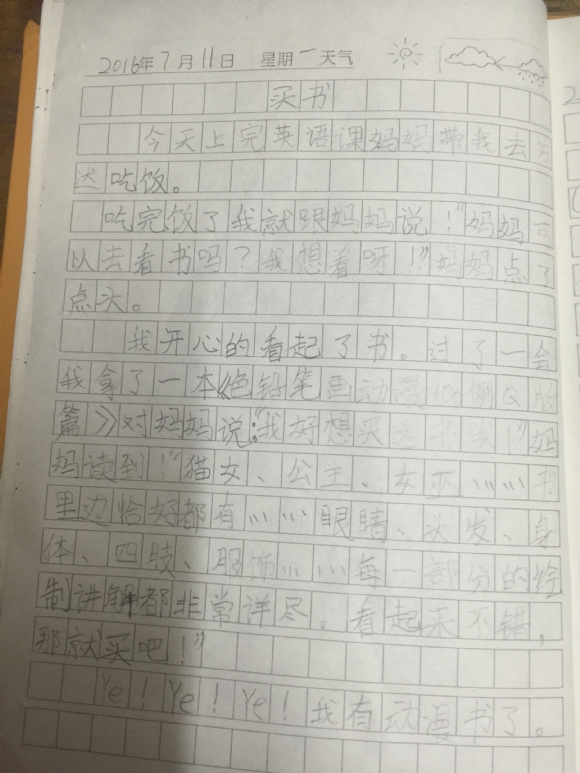 2016年7月11日 星期一 天气
买书
今天上完英语课妈妈带我去万
达吃饭。
吃完饭了我就跟妈妈说！"妈妈可
以去看书吗？我想看呀！"妈妈点了
点头。
我开心的看起了书。过了一会
我拿了一本《色铅笔画动漫100例Q版
篇》对妈妈说："我好想买这本书！"妈
妈读到！"猫女、公主、女巫……书
里边恰好都有……眼睛、头发、身
体、四肢、服饰……每一部分的绘
制讲解都非常详尽。看起来不错，
那就买吧！"
Ye！Ye！Ye！我有动漫书了。
2